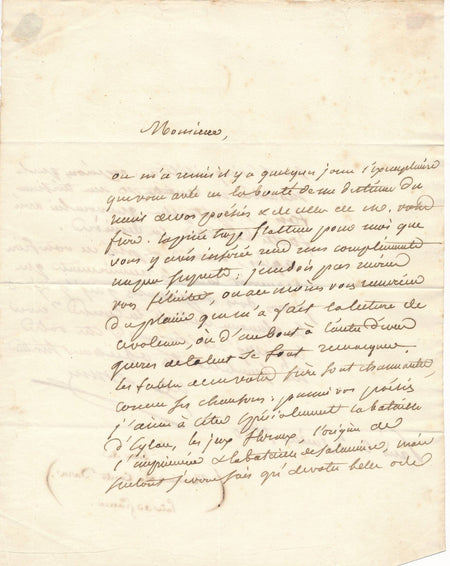 Monsieur,
on m'a remis il y a quelques jours l'exemplaire
que vous avez eu la bonté de me destiner du
recueil de vos poésies & de celles de m. votre
frère. la pièce trop flatteuse pour moi que
vous y avez insérée rend mes complimens
un peu suspects : je ne dois pas moins
vous féliciter, ou au moins vous remercier
du plaisir que m'a fait la lecture de
ce volume, où d'un bout à l'autre d'une
œuvres de talent se font remarquer.
les fables de m. votre frère sont charmantes,
comme ses chansons : parmi vos poésies
j'aime à citer spécialement la bataille
d'Eylau, les jeux floraux, l'origine de
l'imprimerie & la bataille de Salamine, mais
surtout je vous sais gré de votre belle ode